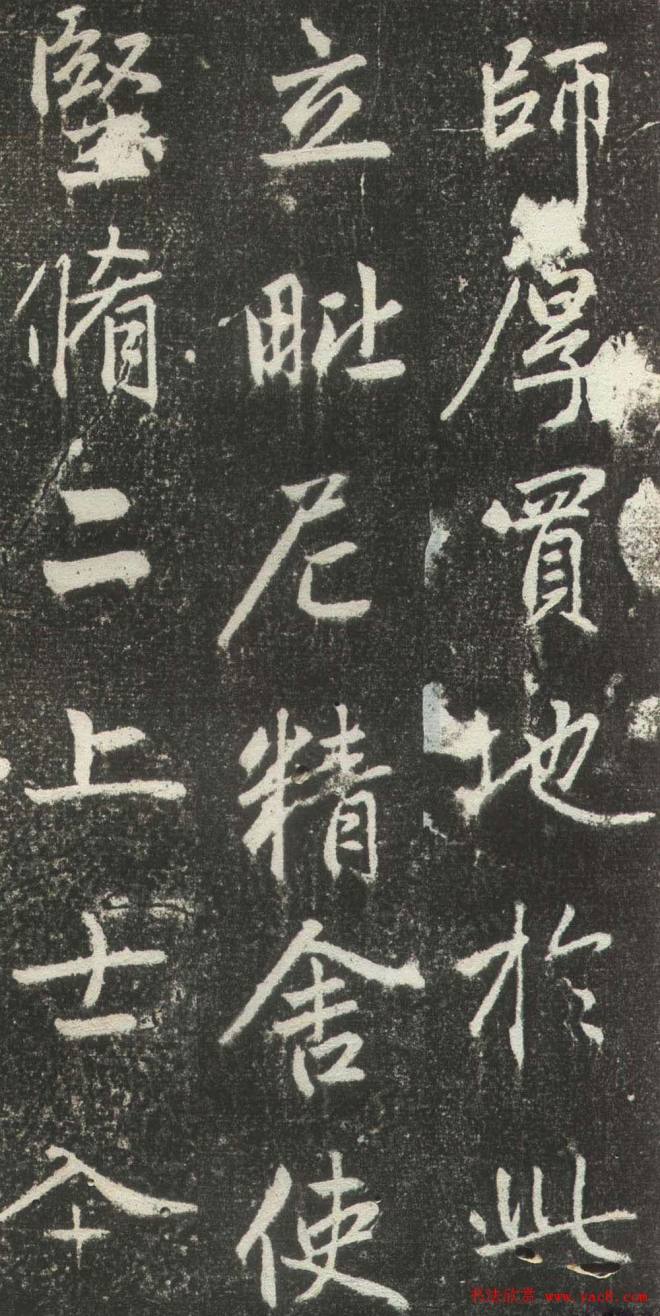 師厚買地於此
立毗尼精舍使
堅脩二上士
书法欣赏 www.yac8.com